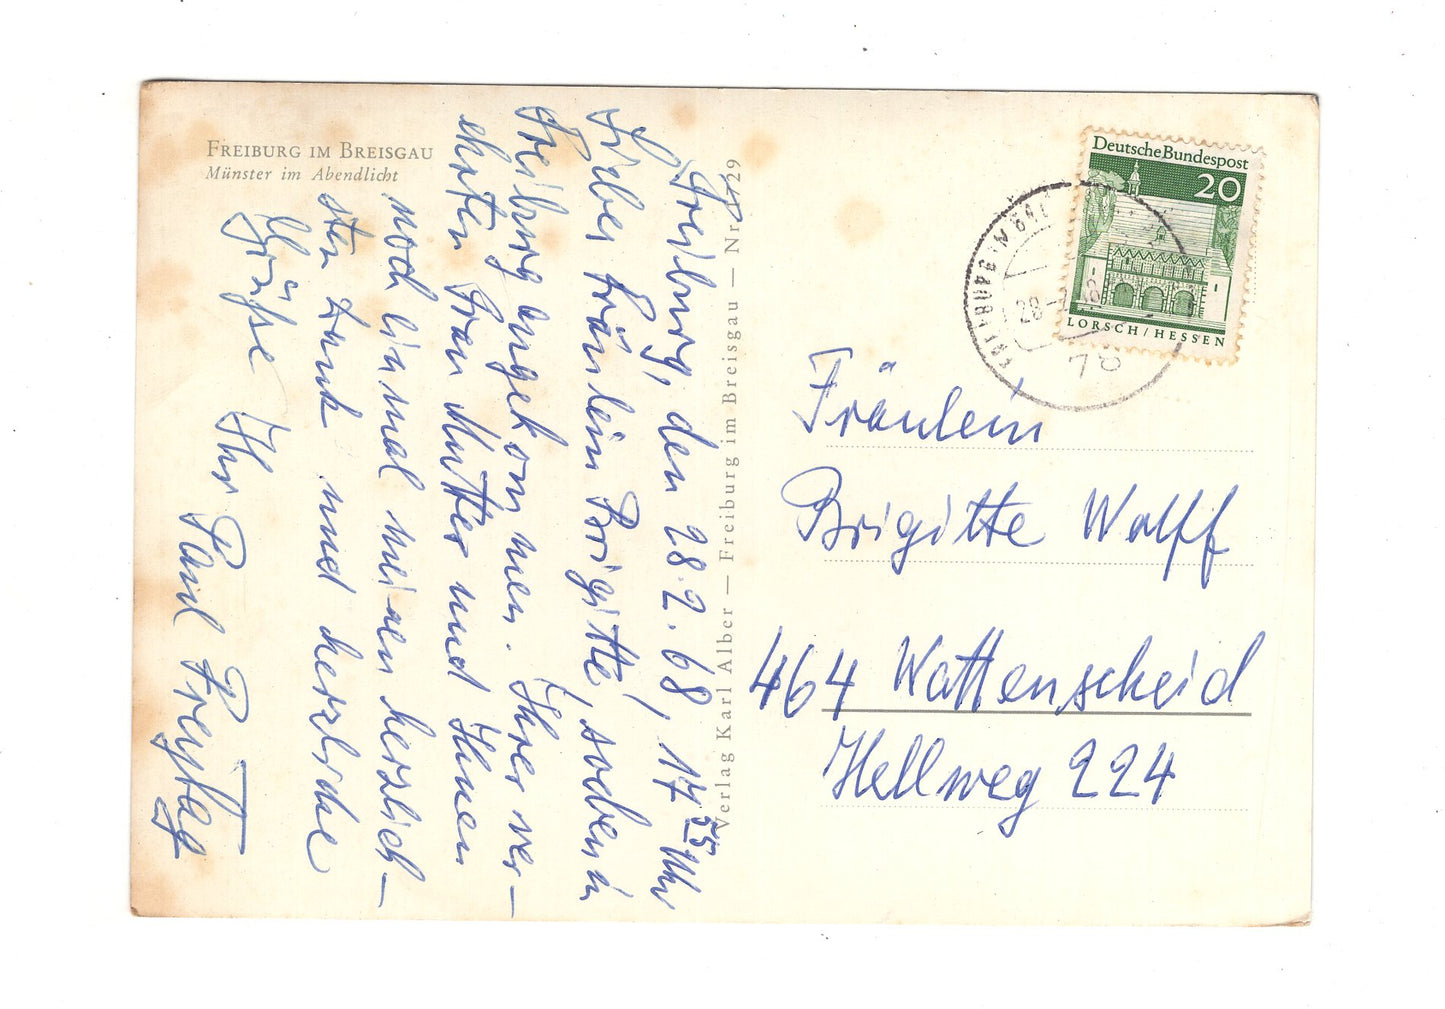 FREIBURG IM BREISGAU
Münster im Abendlicht
Freiburg, den 28.2.68, 17 55 Uhr
Liebes Fräulein Brigitte, soeben in
Freiburg angekommen. Ihrer ver-
ehrten Frau Mutter und Ihnen
noch einmal meinen herzlich-
sten Dank und herzliche
Grüße Ihr Paul Freytag
Verlag Karl Alber — Freiburg im Breisgau — Nr.
Deutsche Bundespost
20
LORSCH/HESSEN
FREIBURG IM
28
78
Fräulein
Brigitte Wolff
464 Wattenscheid
Hellweg 224